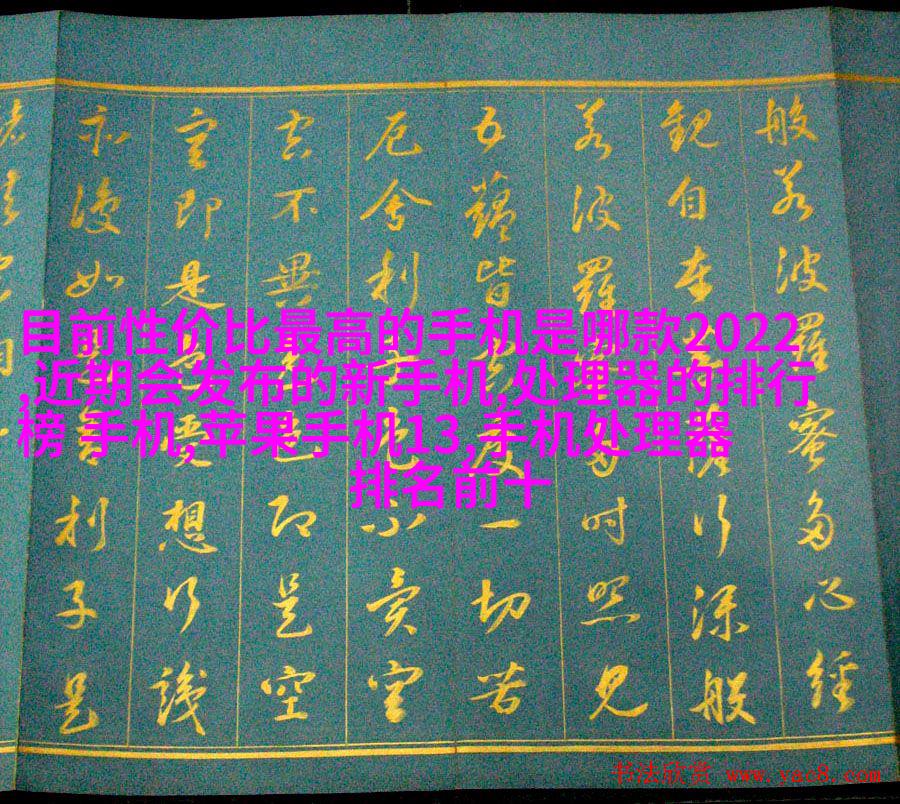 目前性价比最高的手机是哪款2022
,近期会发布的新手机,处理器的排行
榜 手机,苹果手机13,手机处理器
排名前十
般若波羅蜜多心經
觀自在薩行深般
若波羅多時照見
五蘊皆度一切苦
厄舍利色不異空
空不異色即是空
空即是受想行識
亦復如舍利子是
书法欣赏 www.yac8.com